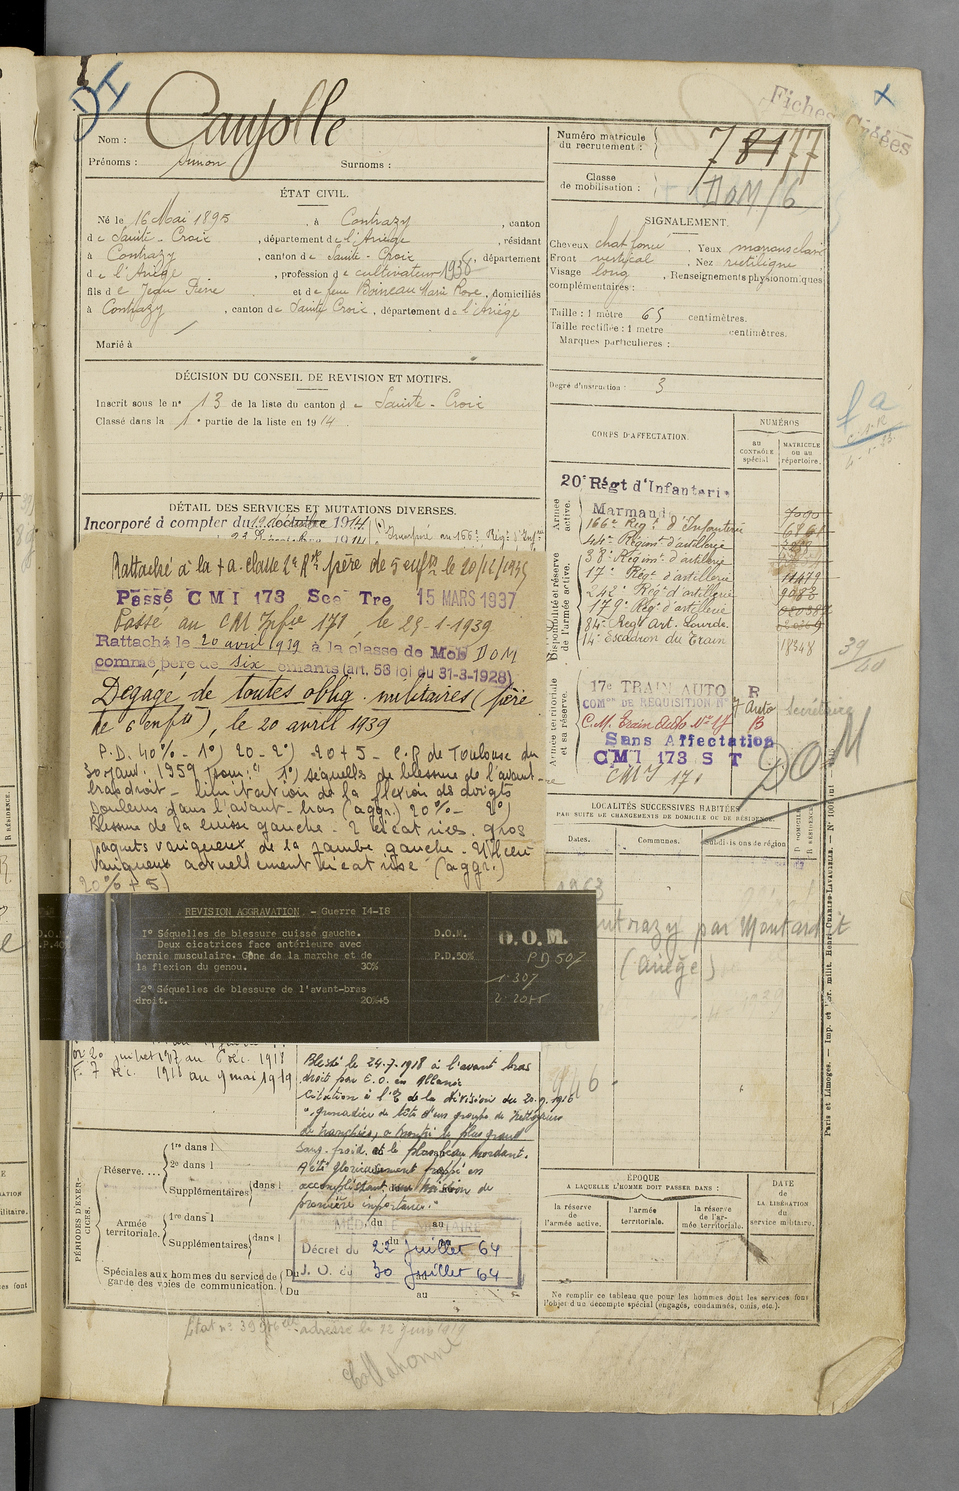 DI
Fiches Créées
Nom : Caujolle
Prénoms : Simon Surnoms :
Numéro matricule du recrutement : 7 8177
Classe de mobilisation : DOM/6
ÉTAT CIVIL.
Né le 16 Mai 1895, à Contrazy, canton
de Sainte-Croix, département de l'Ariège, résidant
à Contrazy, canton de Sainte-Croix, département
de l'Ariège, profession de cultivateur 1938
fils de Jean Pierre et de feue Boineau Marie Rose, domiciliés
à Contrazy, canton de Sainte Croix, département de l'Ariège
Marié à
SIGNALEMENT.
Cheveux chat foncé. Yeux marrons clairs
Front vertical, Nez rectiligne
Visage long, Renseignements physionomiques
complémentaires :
Taille : 1 mètre 65 centimètres.
Taille rectifiée : 1 mètre centimètres.
Marques particulières :
Degré d'instruction : 3
DÉCISION DU CONSEIL DE REVISION ET MOTIFS.
Inscrit sous le n° 13 de la liste du canton de Sainte-Croix
Classé dans la 1e partie de la liste en 1914
CORPS D'AFFECTATION.
NUMÉROS
au contrôle spécial
MATRICULE ou au répertoire.
Armée active.
20e Régt d'Infanterie
Marmande
166e Régt d'Infanterie 6861
44e Régiment d'artillerie
38e Régimt d'artillerie
17e Régt d'artillerie 11479
242e Régt d'artillerie 9083
179e Régt d'artillerie
84e Régt Art. Lourde
14e Escadron du Train 18348
Disponibilité et réserve de l'armée active.
Armée territoriale et sa réserve.
17e TRAIN AUTO R
COMon DE RÉQUISITION N° 7 Auto Secrétaire
C.M. Train Auto N° 17 B
Sans Affectation
CMI 173 S T
CMI 171
DOM
39/40
DÉTAIL DES SERVICES ET MUTATIONS DIVERSES.
Incorporé à compter du 19 décembre 1914
Rattaché à la + a. classe 2e Rve père de 5 enfts le 20/12/1935
Passé CMI 173 Sce Tre 15 MARS 1937
Passé au CM Infie 171, le 25-1-1939
Rattaché le 20 avril 1939 à la classe de Mob DOM
comme père de six enfants (art. 58 loi du 31-3-1928)
Dégagé de toutes oblig. militaires (père
de 6 enfts), le 20 avril 1939
P.D. 40% - 1°) 20 - 2°) 20+5 - C.R de Toulouse du
30 janv. 1959 pour : " 1°) séquelles de blessure de l'avant-
bras droit - limitation de la flexion des doigts
Douleurs dans l'avant-bras (aggr.) 20% - 2°)
Blessure de la cuisse gauche - 2 cicatrices, gros
paquets variqueux de la jambe gauche - Ulcère
variqueux actuellement cicatrisé (aggr.)
20% + 5)
REVISION AGGRAVATION - Guerre I4-I8
I° Séquelles de blessure cuisse gauche.
Deux cicatrices face antérieure avec
hernie musculaire. Gêne de la marche et de
la flexion du genou. 30%
2° Séquelles de blessure de l'avant-bras
droit. 20%+5
D.O.M.
P.D.50%
D.O.M.
PD 50%
1: 30%
2: 20+5
or 20 juillet 1917 au 6 déc. 1918
F. 7 déc. 1918 au 9 mai 1919
Blessé le 24-7-1918 à l'avant bras
droit par E.O. en Alsace
Citation à l'O. de la division du 20.9.1916
"grenadier de tête d'un groupe de nettoyeurs
de tranchées, a montré le plus grand
sang-froid et le plus beau mordant.
A été glorieusement frappé en
accomplissant une mission de
première importance."
LOCALITÉS SUCCESSIVES HABITÉES
PAR SUITE DE CHANGEMENTS DE DOMICILE OU DE RÉSIDENCE.
Dates. Communes. Subdivisions de région. D DOMICILE R RÉSIDENCE.
1963
Contrazy par Montardit
(Ariège)
946
PÉRIODES D'EXERCICES.
Réserve.... 1re dans l
2e dans l
Supplémentaires dans l
Armée territoriale. 1re dans l
Supplémentaires dans l
Spéciales aux hommes du service de garde des voies de communication.
Du au
Du au
MÉDAILLE MILITAIRE
Décret du 22 Juillet 64
J. O. du 30 Juillet 64
ÉPOQUE
A LAQUELLE L'HOMME DOIT PASSER DANS :
la réserve de l'armée active.
l'armée territoriale.
la réserve de l'armée territoriale.
DATE de LA LIBÉRATION du service militaire.
Ne remplir ce tableau que pour les hommes dont les services font
l'objet d'un décompte spécial (engagés, condamnés, omis, etc.).
Paris et Limoges. — Imp. et libr. milit. Henri CHARLES-LAVAUZELLE.
Collationné